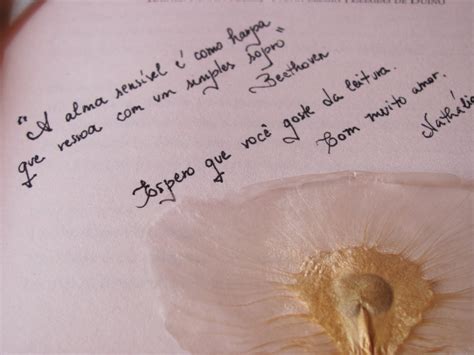 DE DUÍNO
"A alma sensível é como harpa
que ressoa com um simples sopro"
Beethoven
Espero que você goste da leitura.
Com muito amor.
Nathália